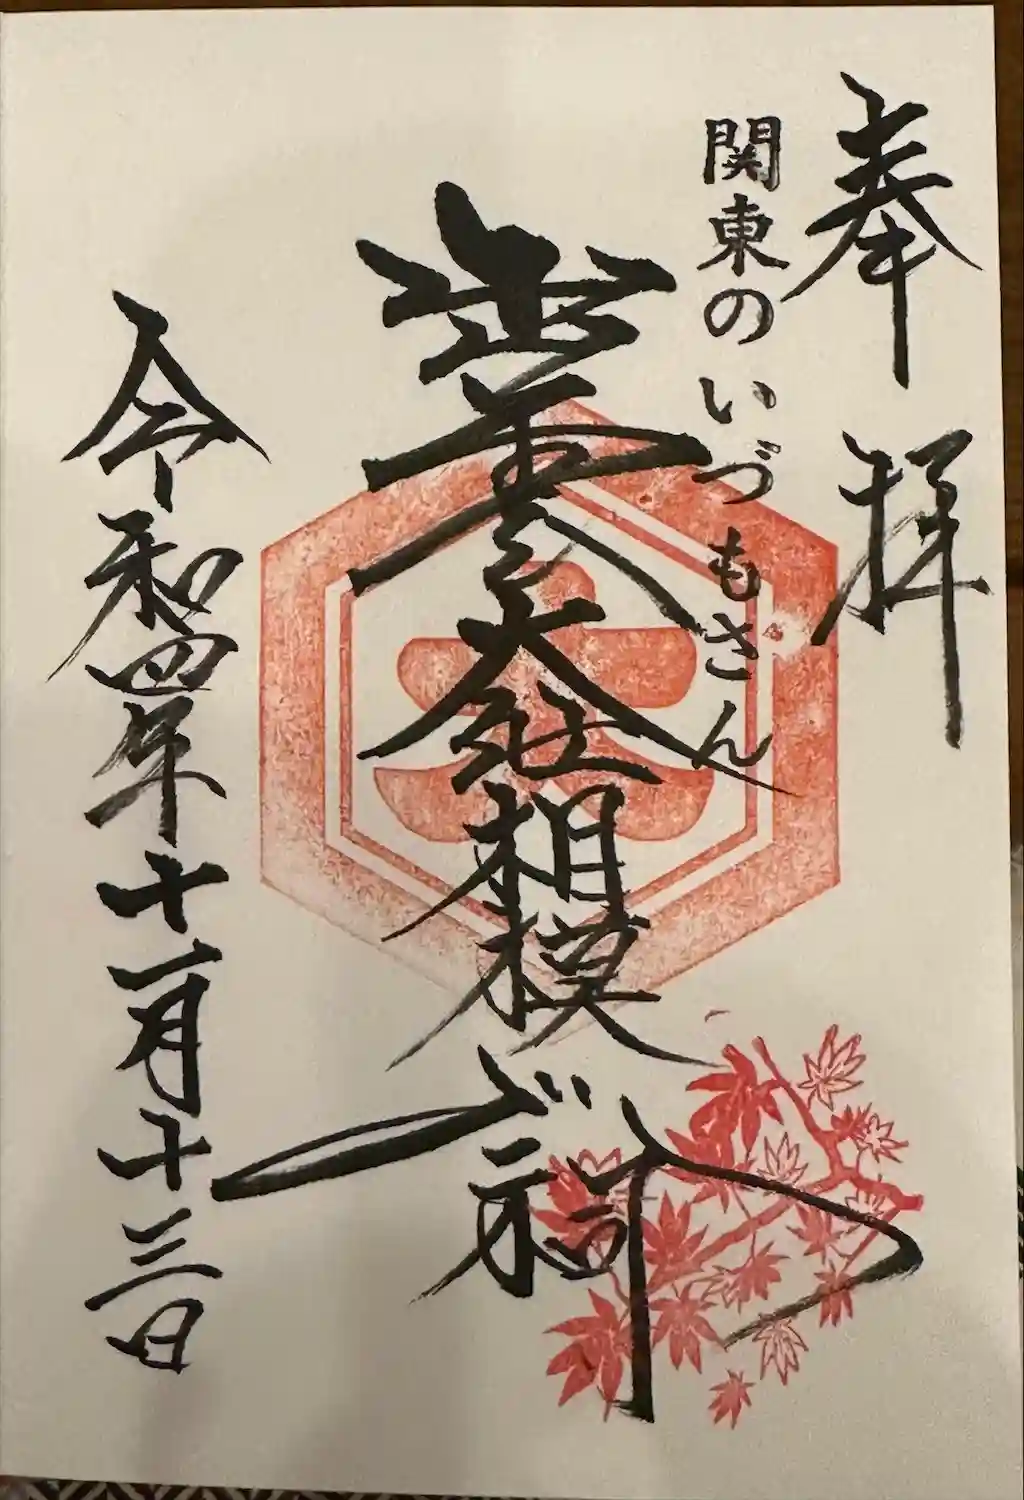 奉拝
関東のいづもさん
出雲大社相模分祠
令和四年十一月十三日
大